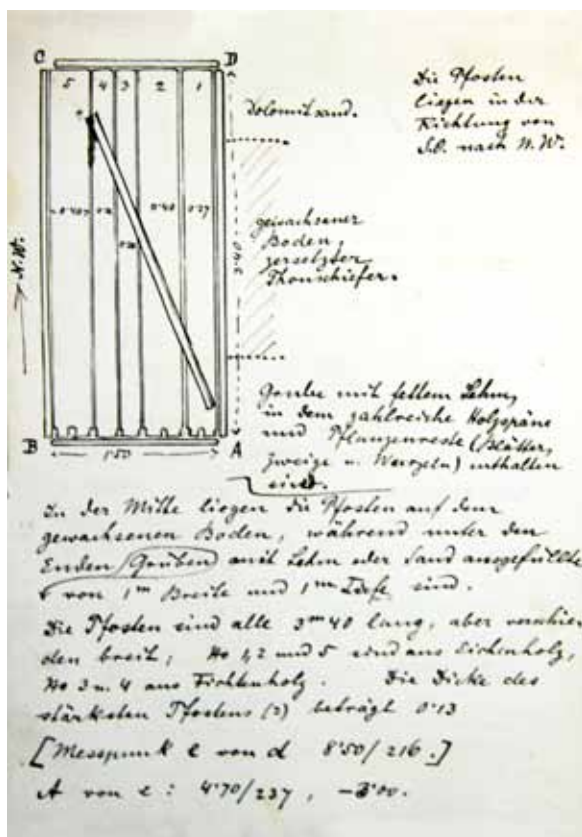 C D
5 4 3 2 1
Die Pfosten
liegen in der
Richtung von
S.O. nach N.W.
dolomitsand.
gewachsener
Boden,
zersetzter
Thonschiefer.
3.40
N.W.
0.40 0.27
B 1.50 A
Grube mit fettem Lehm,
in dem zahlreiche Holzspäne
und Pflanzenreste (Blätter,
Zweige u. Wurzeln) enthalten
sind.
In der Mitte liegen die Pfosten auf dem
gewachsenen Boden, während unter den
Enden Gruben mit Lehm oder Sand ausgefüllte
von 1m Breite und 1m Tiefe sind.
Die Pfosten sind alle 3m40 lang, aber verschie-
den breit; No 1,2 und 5 sind aus Eichenholz,
No 3 u. 4 aus Fichtenholz. Die Dicke des
stärksten Pfostens (2) beträgt 0.13
[Messpunk e von d 8.50/216.]
A von e: 4.70/237,